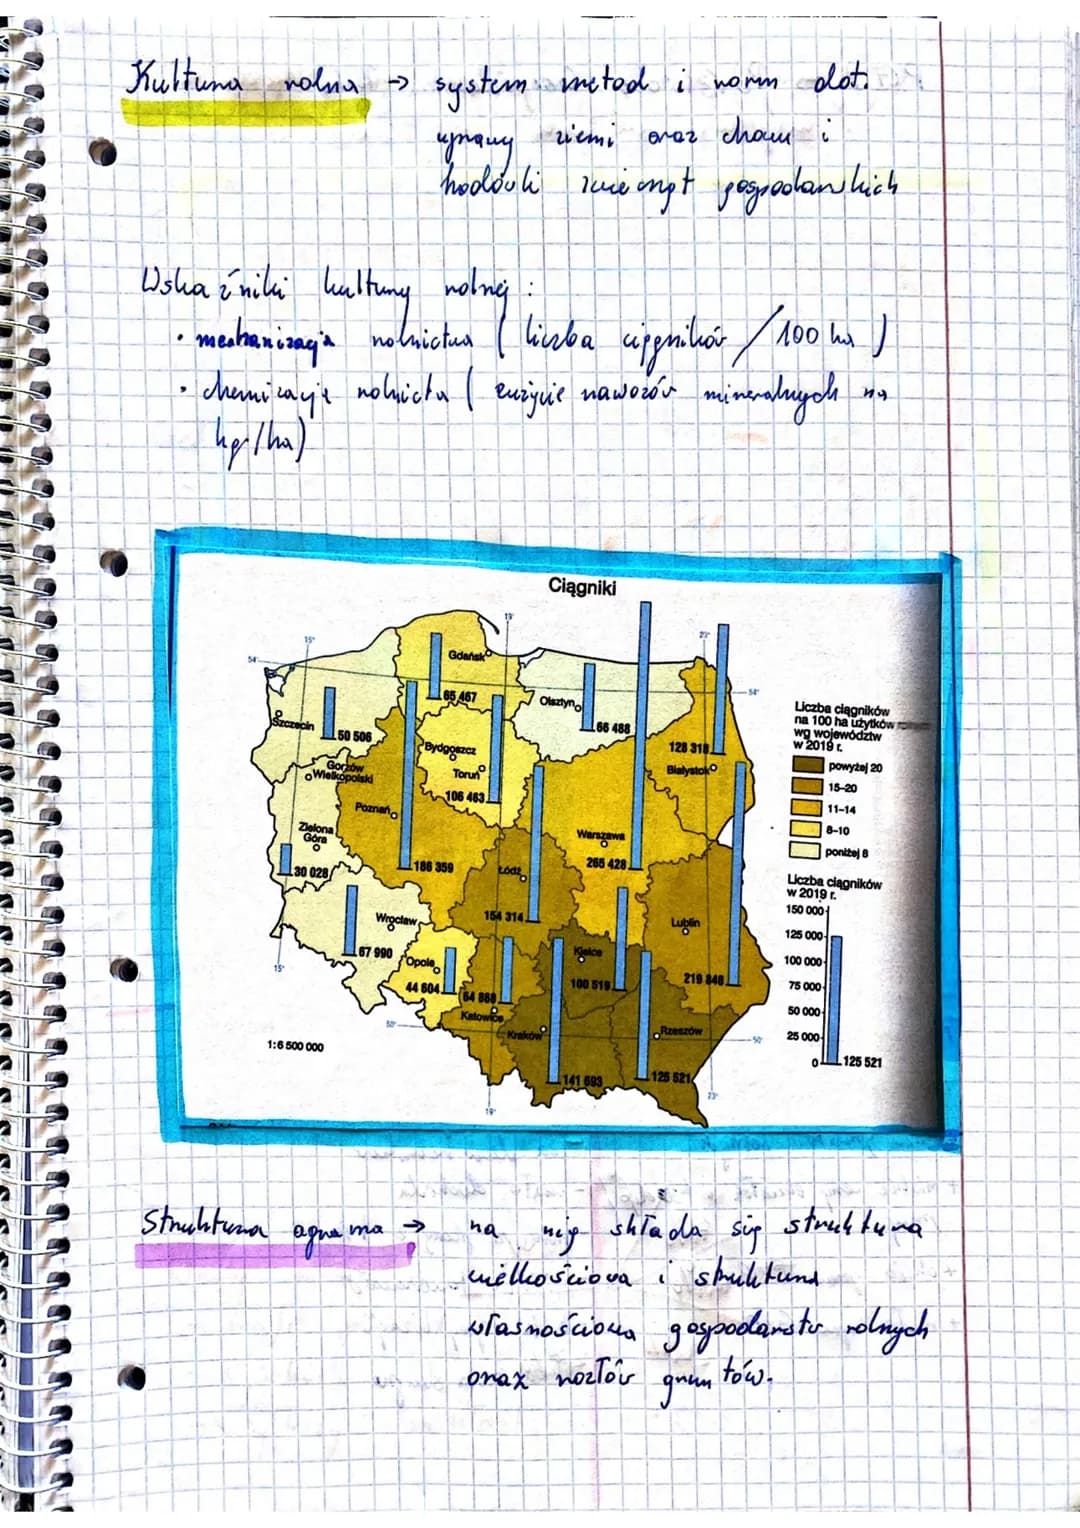 Kultura rolna → system metod i norm dot.
uprawy ziemi oraz chowu i
hodowli zwierząt gospodarskich
Wskaźniki kultury rolnej :
• mechanizacja rolnictwa ( liczba ciągników / 100 ha )
• chemizacja rolnicta ( zużycie nawozów mineralnych na
kg/ha)
Ciągniki
15°
19°
23°
54°
54°
Gdańsk
65 467
Olsztyn
66 488
Szczecin
50 506
128 318
Białystok
Bydgoszcz
Toruń
106 463
Gorzów
Wielkopolski
Poznań
186 359
Zielona
Góra
30 028
Warszawa
265 428
Łódź
154 314
Wrocław
67 990
Lublin
219 846
Opole
44 604
Kielce
100 519
64 868
Katowice
Kraków
141 693
Rzeszów
125 521
15°
50°
50°
19°
23°
1:6 500 000
Liczba ciągników
na 100 ha użytków
wg województw
w 2019 r.
powyżej 20
15–20
11–14
8–10
poniżej 8
Liczba ciągników
w 2019 r.
150 000
125 000
100 000
75 000
50 000
25 000
0
125 521
Struktura agrarna → na nią składa się struktura
wielkościowa i struktura
własnościowa gospodarstw rolnych
oraz rozłóg gruntów.